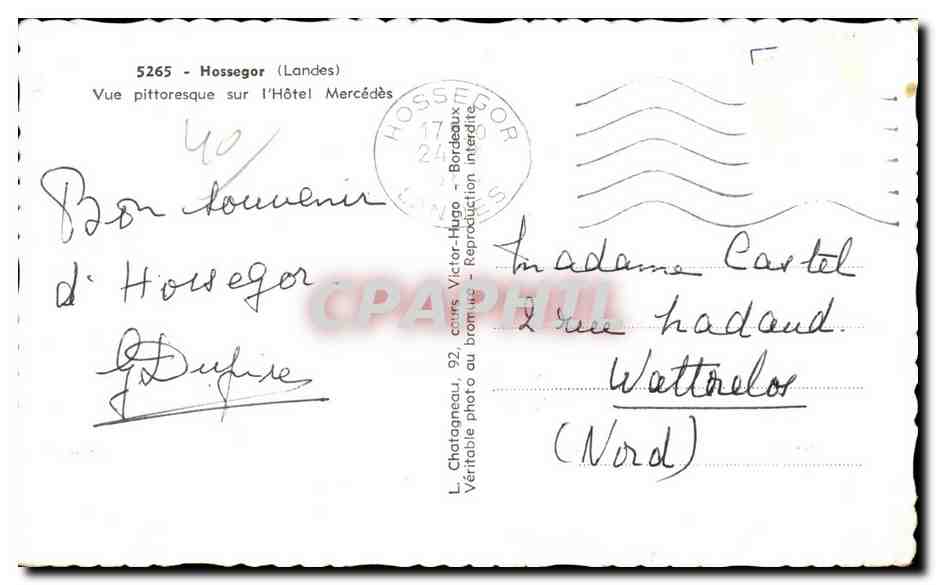 5265 - Hossegor (Landes)
Vue pittoresque sur l'Hôtel Mercédès
40
Bon souvenir
d'Hossegor
G Dufire
HOSSEGOR
17
24
LANDES
L. Chatagneau, 92, cours Victor-Hugo - Bordeaux
Véritable photo au bromure - Reproduction interdite
CPAPHIL
Madame Castel
2 rue Nadaud.
Wattrelos
(Nord)